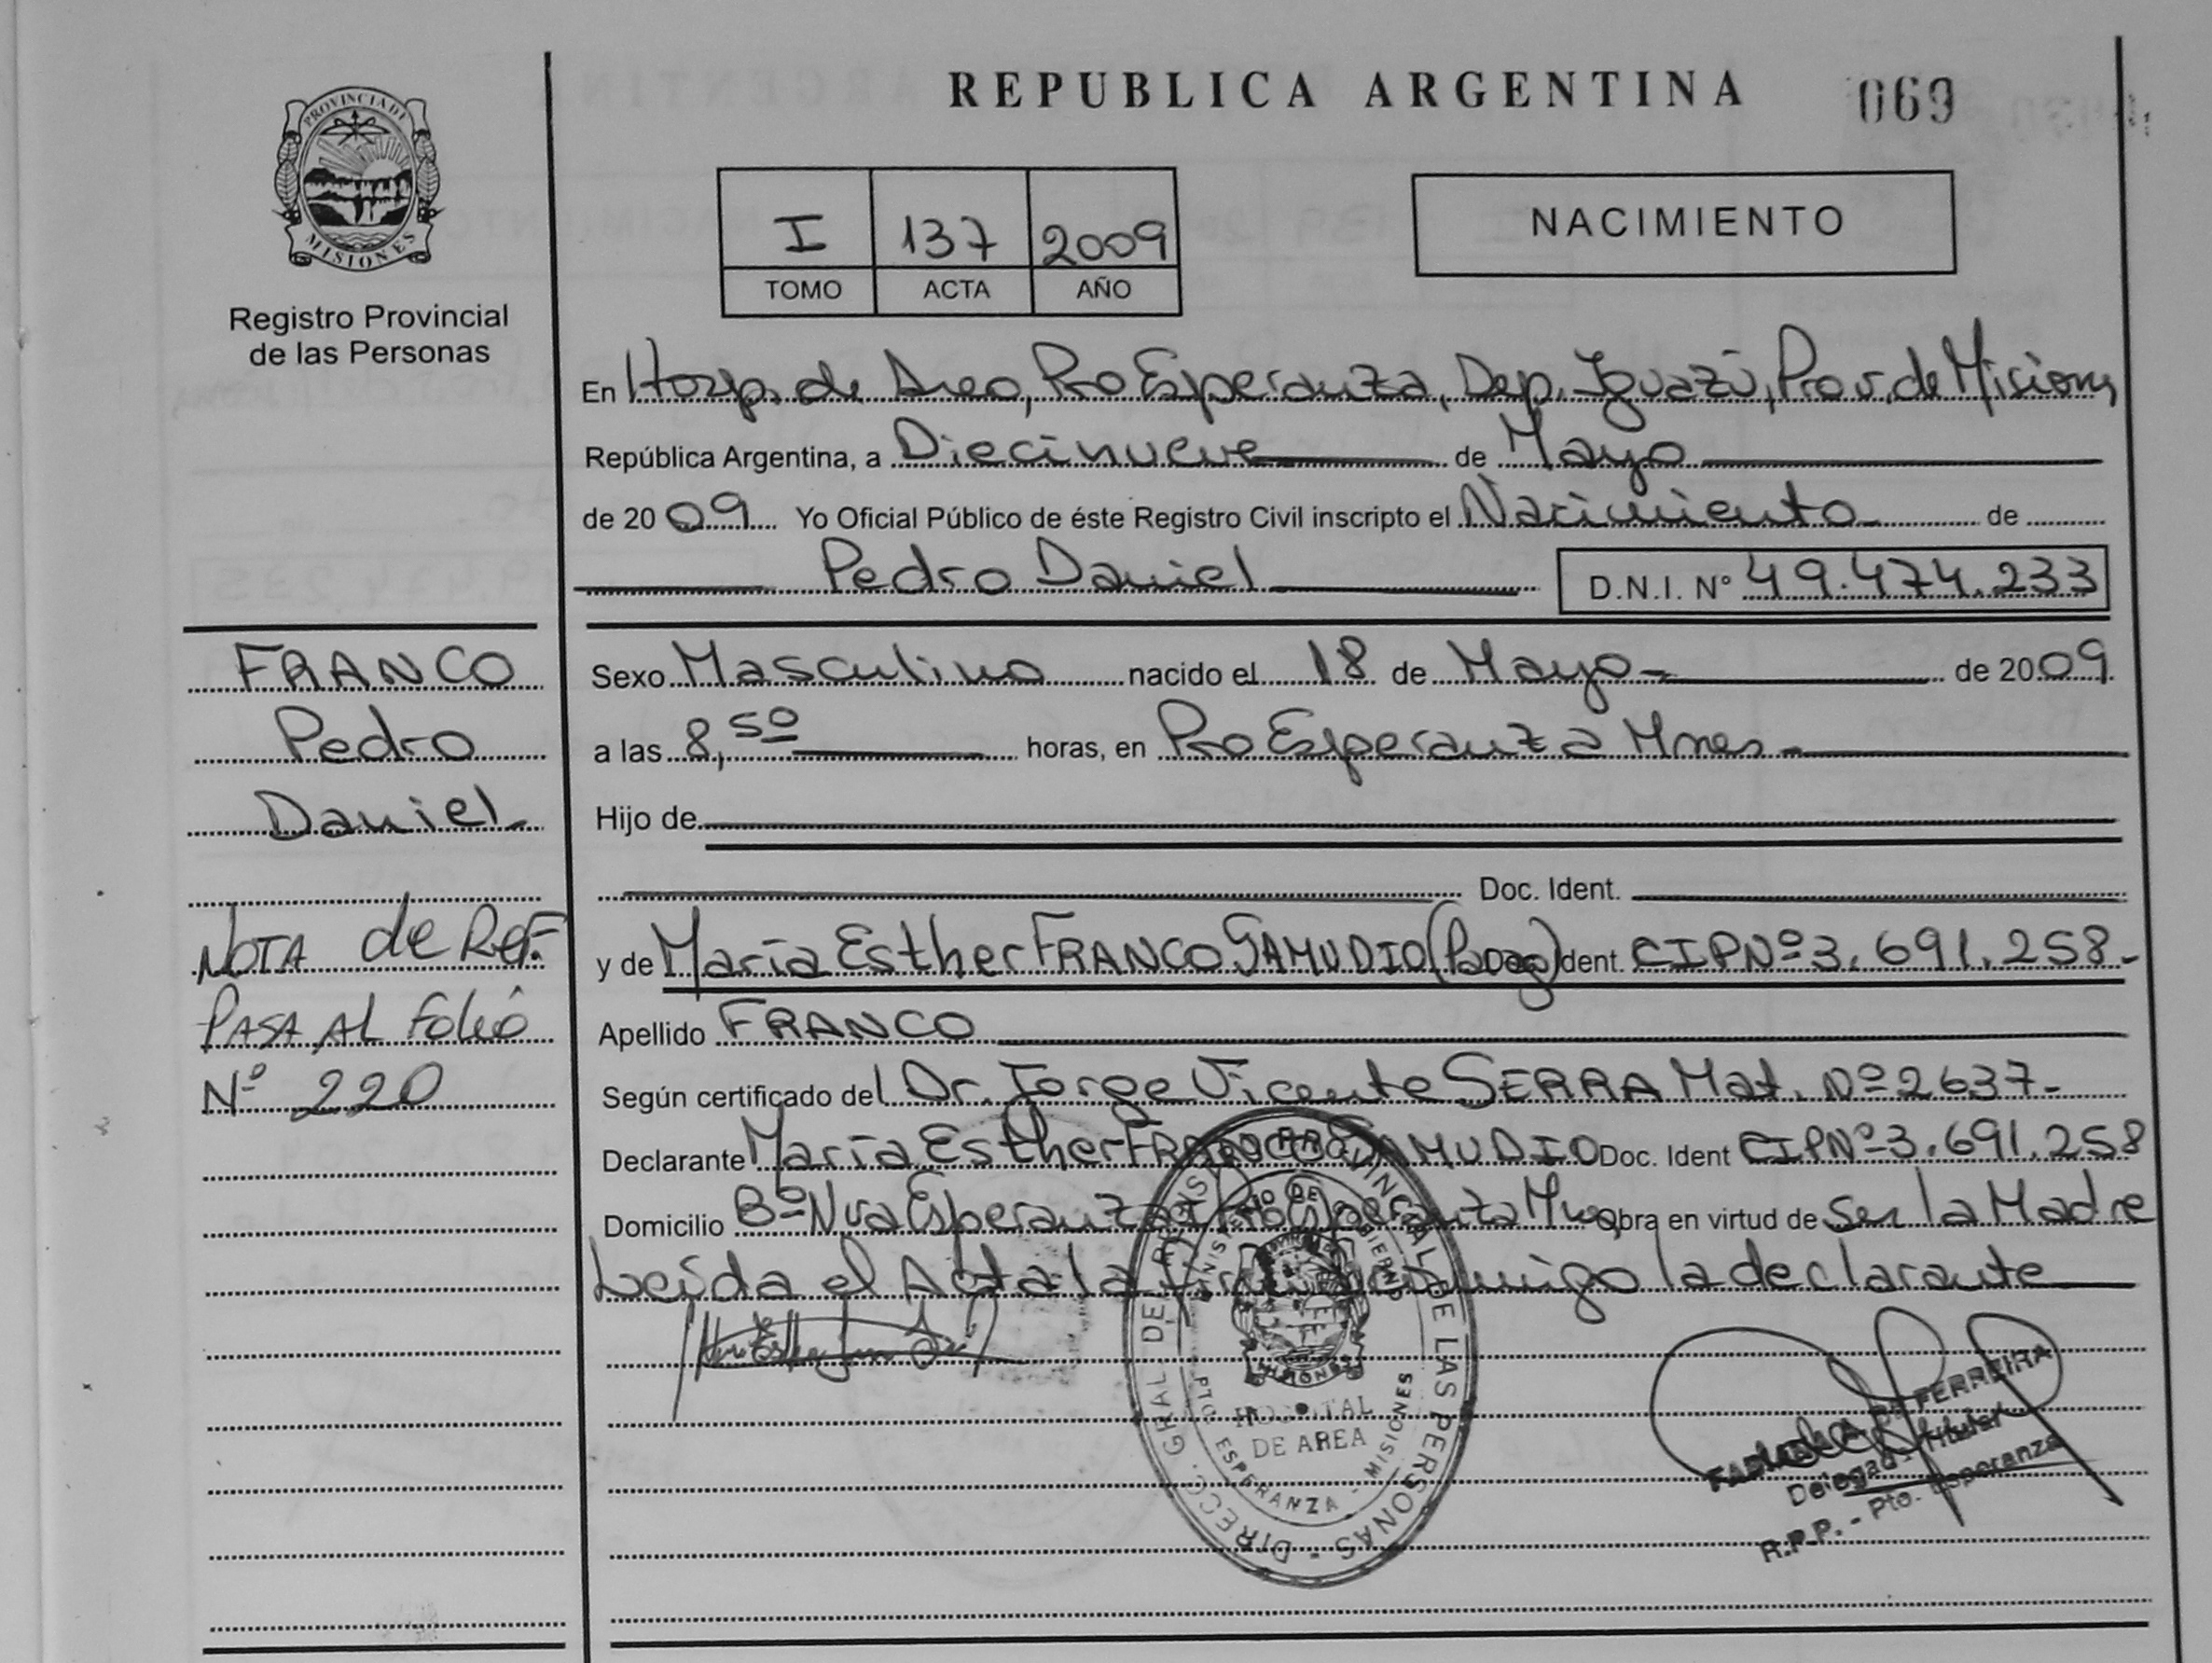 REPUBLICA ARGENTINA
069
PROVINCIA DE MISIONES
Registro Provincial
de las Personas
I 137 2009
TOMO ACTA AÑO
NACIMIENTO
En Hosp. de Area, Pto Esperanza, Dep. Iguazú, Prov. de Misiones
República Argentina, a Diecinueve de Mayo
de 2009 Yo Oficial Público de éste Registro Civil inscripto el Nacimiento de
Pedro Daniel D.N.I. Nº 49.474.233
FRANCO
Pedro
Daniel
NOTA de Ref.
PASA AL Folio
Nº 220
Sexo Masculino nacido el 18 de Mayo de 2009
a las 8,50 horas, en Pto Esperanza Mnes
Hijo de
Doc. Ident.
y de María Esther FRANCO GAMUDIO Ident. CIPNº3.691.258-
Apellido FRANCO
Según certificado del Dr. Jorge Vicente SERRA Mat. Nº2637-
Declarante María Esther FRANCO GAMUDIO Doc. Ident CIPNº3.691.258
Domicilio Bº Nva Esperanza Pto Esperanza Obra en virtud de ser la Madre
Leída el Acta la conmigo la declarante
DIRECC. GRAL DE REGISTRO PROVINCIAL DE LAS PERSONAS
MINISTERIO DE GOBIERNO
HOSPITAL
DE AREA
PTO. ESPERANZA - MISIONES
FERREIRA
Titular
R.P.P. - Pto. Esperanza